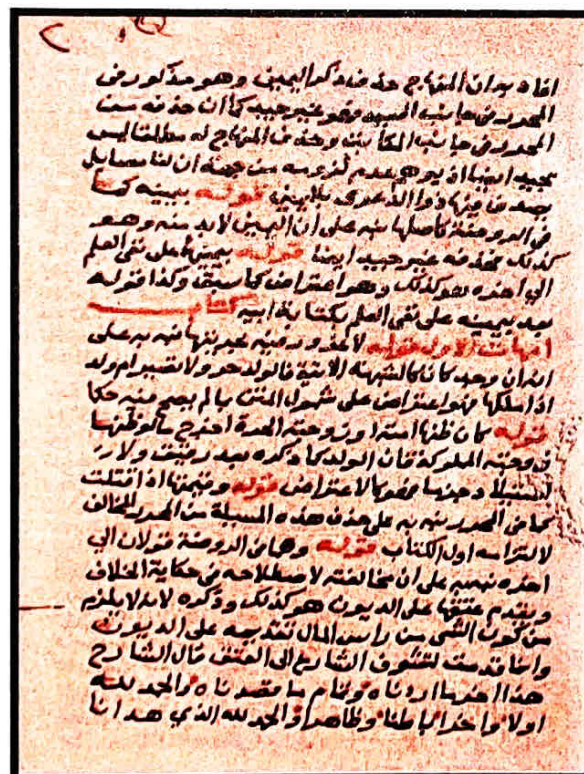 افاد به ان المنهاج حذف ذكر اليمين وهو مذكور في
المحرر في جانب السيد وهو غير جيد كما ان حذفه ست
المحرر في جانب المكاتب وحذف المنهاج له مطلقا ليس
بجيد ايضا اذ يوهم عدم لزومه من جهة ان لنا مسايل
يصدق فيها ذو الدعوى بلا يمين قوله بيمينه كما
في الروضة كاصلها نبه على أن اليمين لابد منه وهو
كذلك فحذفه غير جيد ايضا قوله بيمينه على نفي العلم
الى اخره هو كذلك وهو اعتراض كما سبق وكذا قوله
بعد بيمينه على نفي العلم بكتابة ابيه كتاب
امهات الاولاد قوله لا عذر ومنه غيرتها نبه به على
انه ان وجد كان كالشبهة الاتية فالولد حر ولا تصير ام ولد
اذا ملكها فهو اعتراض على شمول المتن
قوله كان ظنها امته او زوجته الحرة احترز عما لو ظنها
زوجته المملوكة فان الولد كما ذكره بعد رقيق
فهو كالاعتراض قوله وقيمتها اذا قتلت
كما في المحرر نبه به على حذف هذه المسيلة من المحرر المخالف
لالتزامه اول الكتاب قوله وهما في الروضة قولان الى
اخره تنبيه على ان مخالفته لاصطلاحه في حكاية الخلاف
ويقدم عتقها على الديون هو كذلك وذكره لانه لا يلزم
من كون الشي من راس المال تقديمه على الديون
وانما قدمت لتشوف الشارع الى العتق قال الشارح
هذا اخر ما اردناه وتمام ما قصدناه والحمد لله
اولا واخرا باطنا وظاهرا والحمد لله الذي هدانا